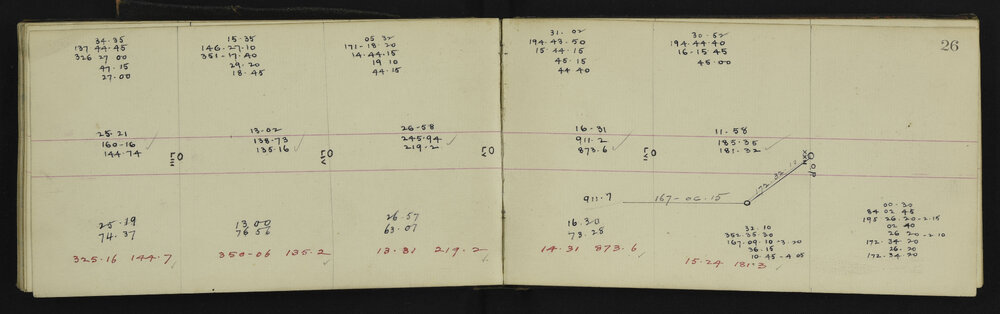 26
34.35
137 44.45
326 27 00
47.15
27.00
15.35
146-27.10
351-17.40
29.20
18.45
05 32
171-18.20
14.44.15
19 10
44.15
31.02
194.43-50
15.44.15
45.15
44 40
30-52
194.44.40
16-15 45
45.00
25.21
160-16
144.74
LIII
13-02
138-73
135.16
LIV
26-58
245.94
219.2
LV
16-31
911.2
873.6
LVI
11.58
185.35
181.32
O.P
172.32.15
911.7
167-06.15
25.19
74.37
325.16 144.7
13 00
76 56
350-06 135.2
26-57
63.07
13.31 219.2
16.30
73.28
14.31 873.6
32.10
352.35.30
167.09.10-3.20
36.15
10.45-4 05
15.24 181.3
00.30
84 02 45
195 26.20-2.15
02 40
26 20-2.10
172.34 20
26.20
172.34 20